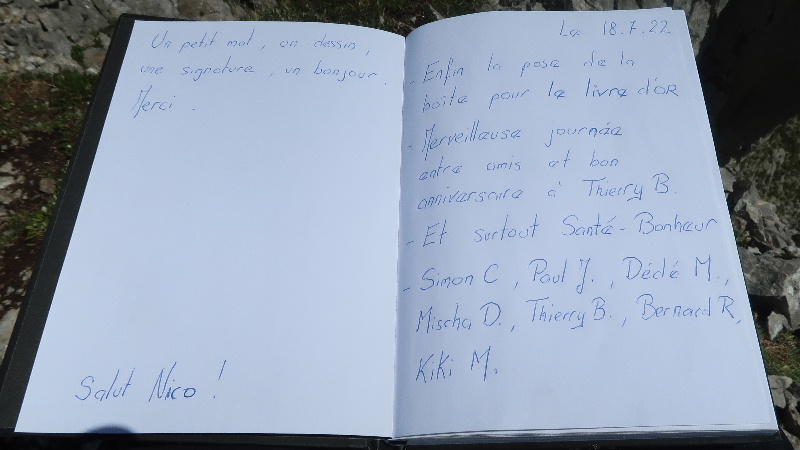 Un petit mot, un dessin,
une signature, un bonjour.
Merci.
Salut Nico !
Le 18.7.22
- Enfin la pose de la
boite pour le livre d'OR
- Merveilleuse journée
entre amis et bon
anniversaire à Thierry B.
- Et surtout Santé - Bonheur
- Simon C, Paul J., Dédé M.,
Mischa D., Thierry B., Bernard R,
KiKi M.